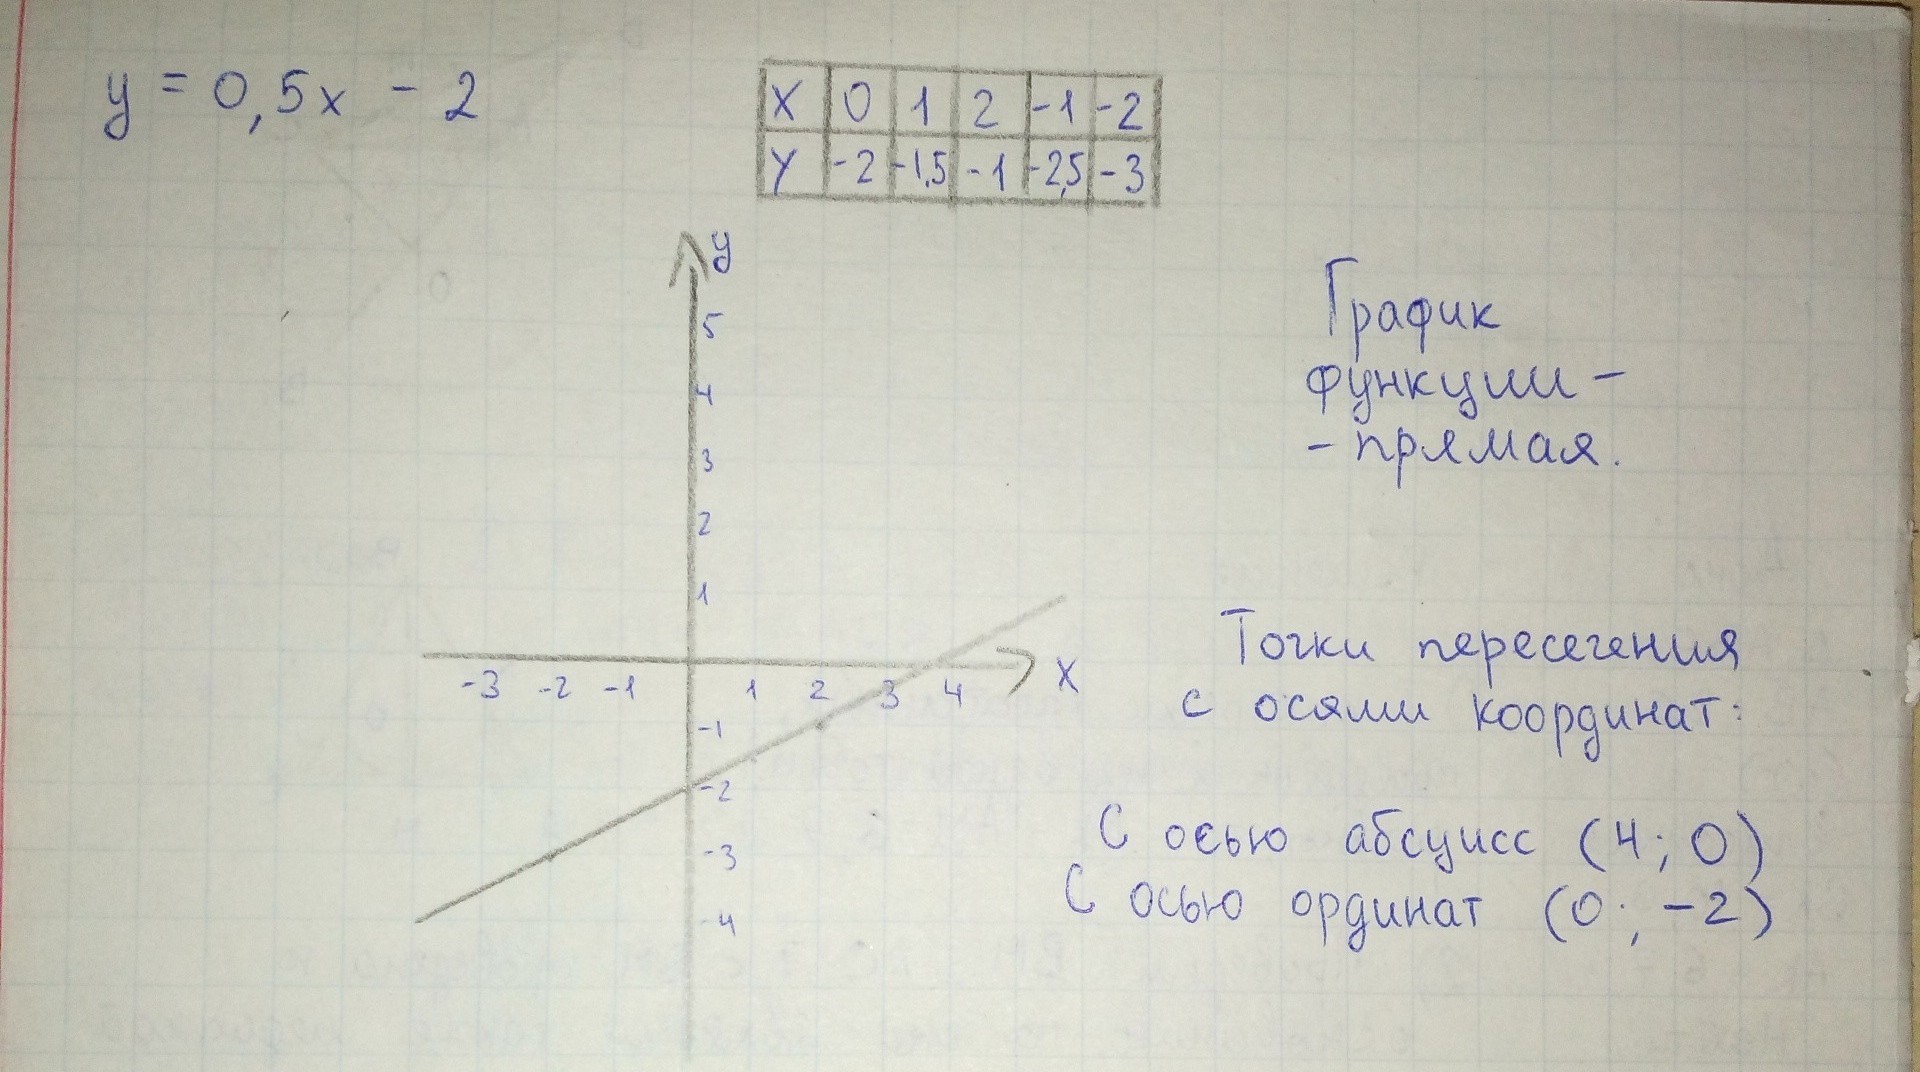 y = 0,5x - 2
X 0 1 2 -1 -2
Y -2 -1,5 -1 -2,5 -3
y
5
4
3
2
1
-3 -2 -1 1 2 3 4 X
-1
-2
-3
-4
График
функции -
- прямая.
Точки пересечения
с осями координат:
С осью абсцисс (4; 0)
С осью ординат (0; -2)